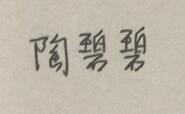 陶碧碧